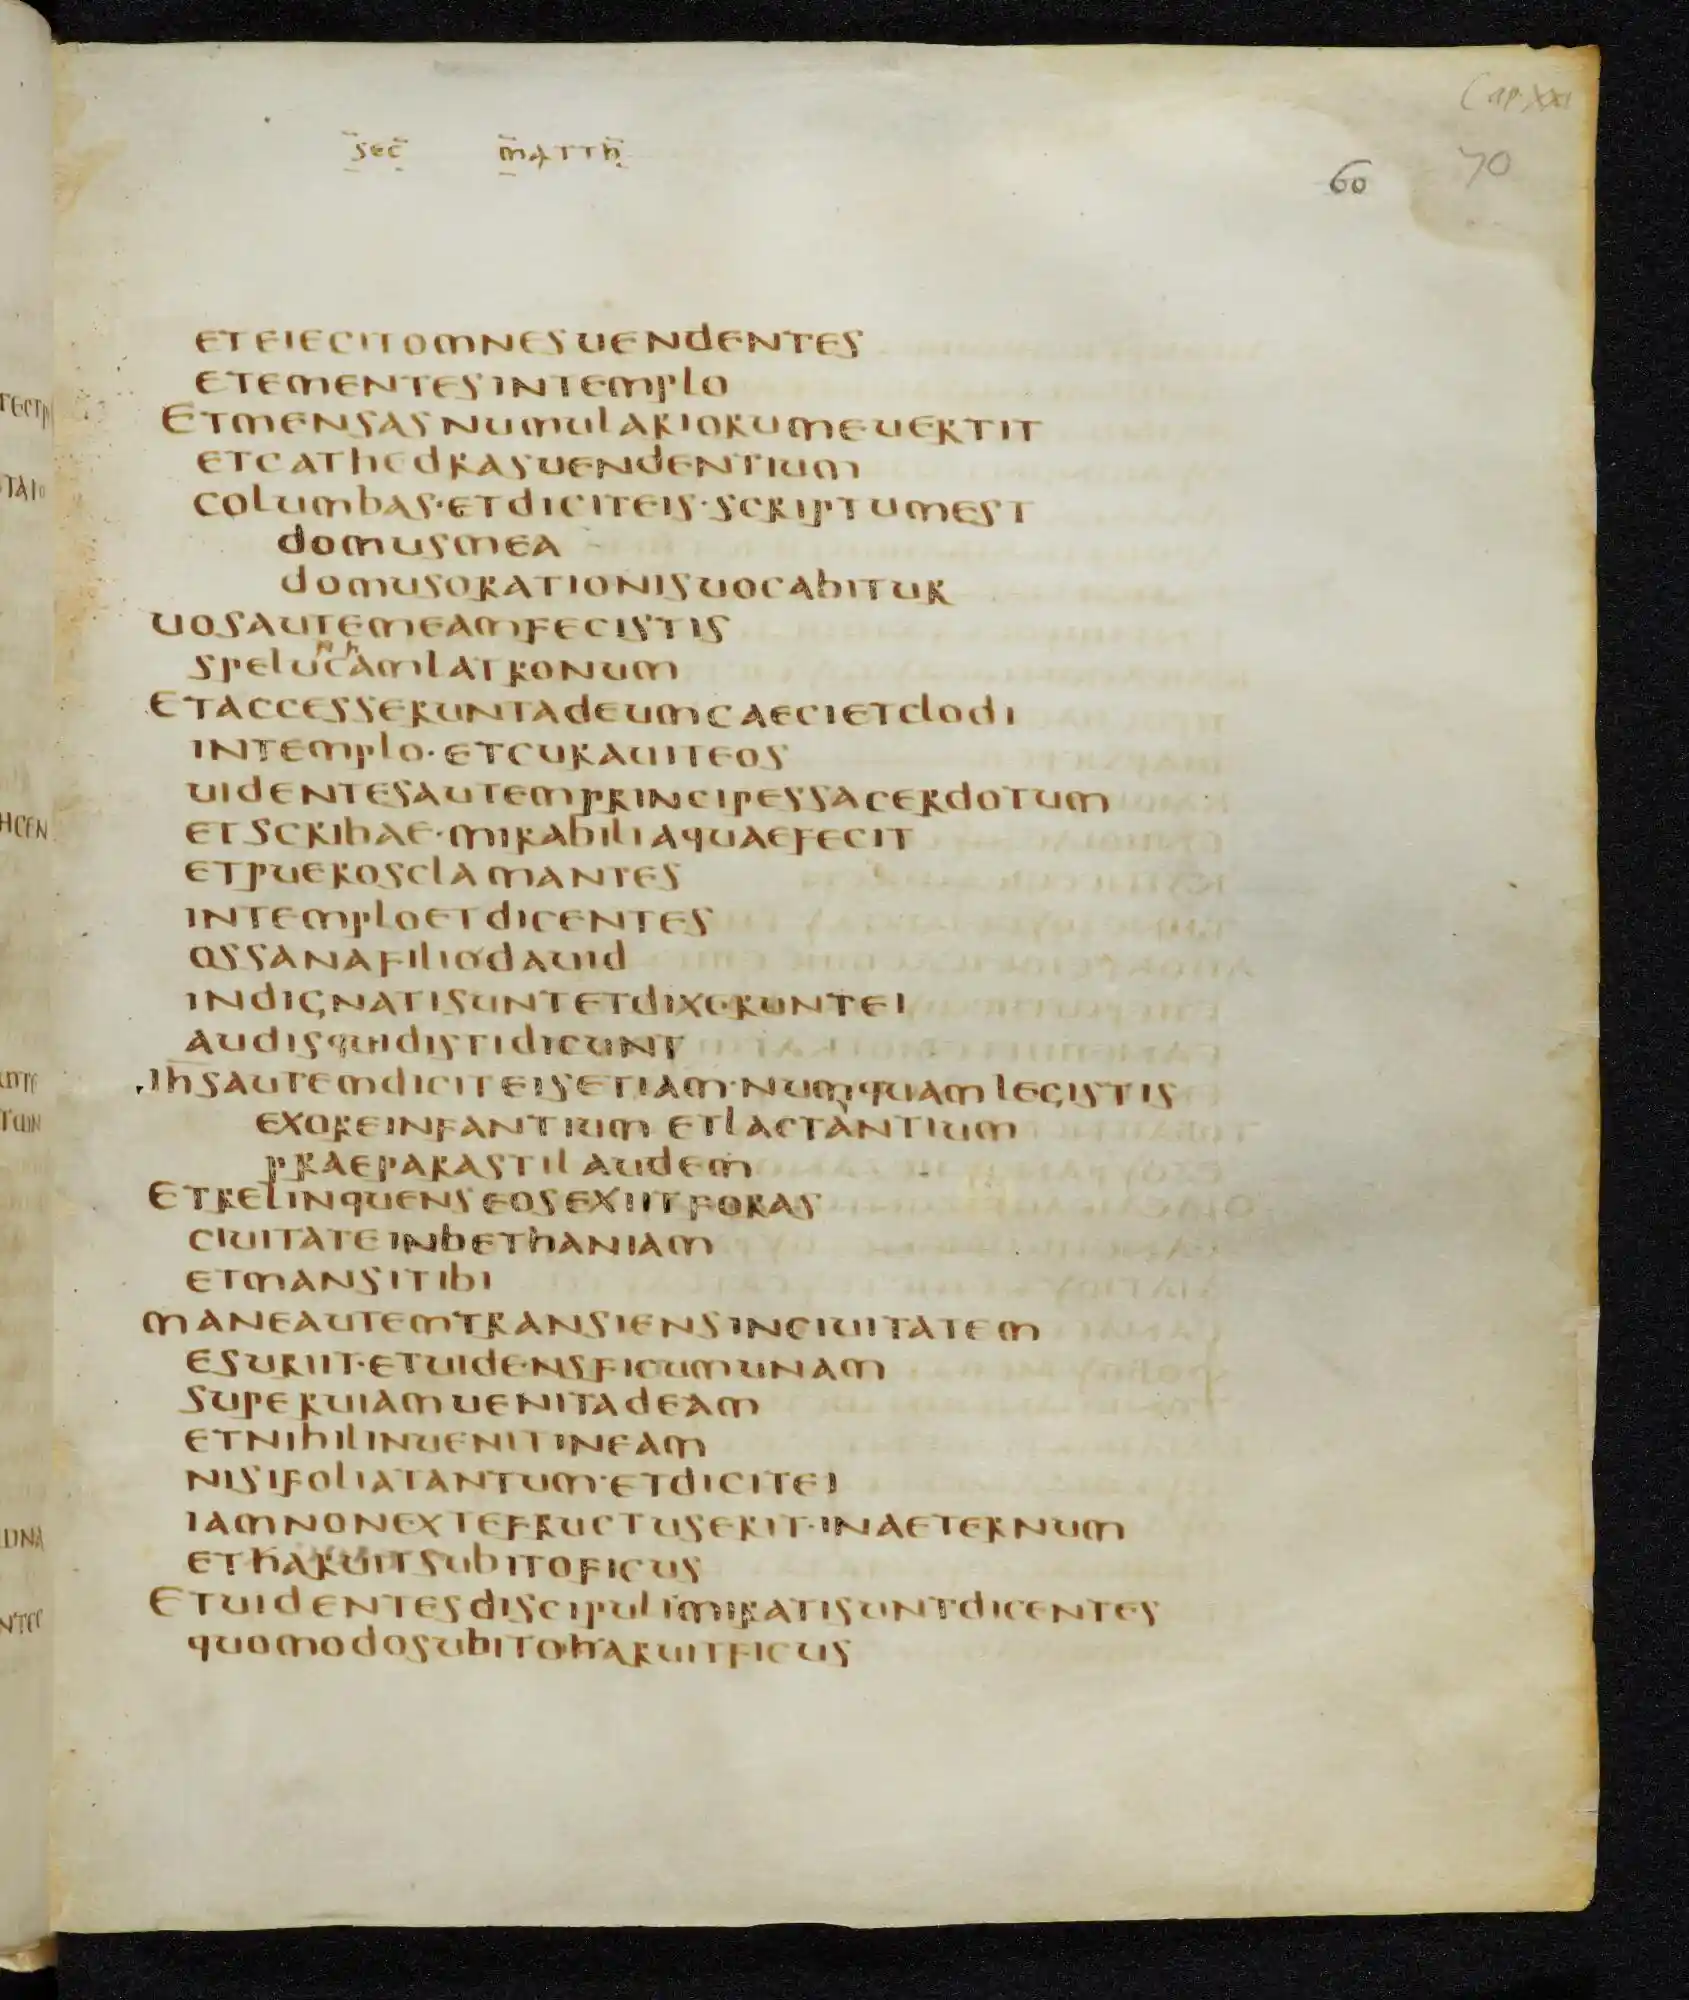 Cap. XXI
sec matth
60 70
ETEIECITOMNESUENDENTES
ETEMENTESINTEMPLO
ETMENSASNUMULARIORUMEUERTIT
ETCATHEDRASUENDENTIUM
COLUMBAS·ETDICITEIS·SCRIPTUMEST
DOMUSMEA
DOMUSORATIONISUOCABITUR
UOSAUTEMEAMFECISTIS
SPELUNCHAMLATRONUM
ETACCESSERUNTADEUMCAECIETCLODI
INTEMPLO·ETCURAUITEOS
UIDENTESAUTEMPRINCIPESSACERDOTUM
ETSCRIBAE·MIRABILIAQUAEFECIT
ETPUEROSCLAMANTES
INTEMPLOETDICENTES
OSSANAFILIODAUID
INDIGNATISUNTETDIXERUNTEI
AUDISQUIDISTIDICUNT
IHSAUTEMDICITEISETIAM·NUMQUAMLEGISTIS
EXOREINFANTIUM ETLACTANTIUM
PRAEPARASTILAUDEM
ETRELINQUENSEOSEXIITFORAS
CIUITATEINBETHANIAM
ETMANSITIBI
MANEAUTEMTRANSIENSINCIUITATEM
ESURIIT·ETUIDENSFICUMUNAM
SUPERUIAMUENITADEAM
ETNIHILINUENITINEAM
NISIFOLIATANTUM·ETDICITEI
IAMNONEXTEFRUCTUSERIT·INAETERNUM
ETHARUITSUBITOFICUS
ETUIDENTESDISCIPULIMIRATISUNTDICENTES
QUOMODOSUBITOHARUITFICUS